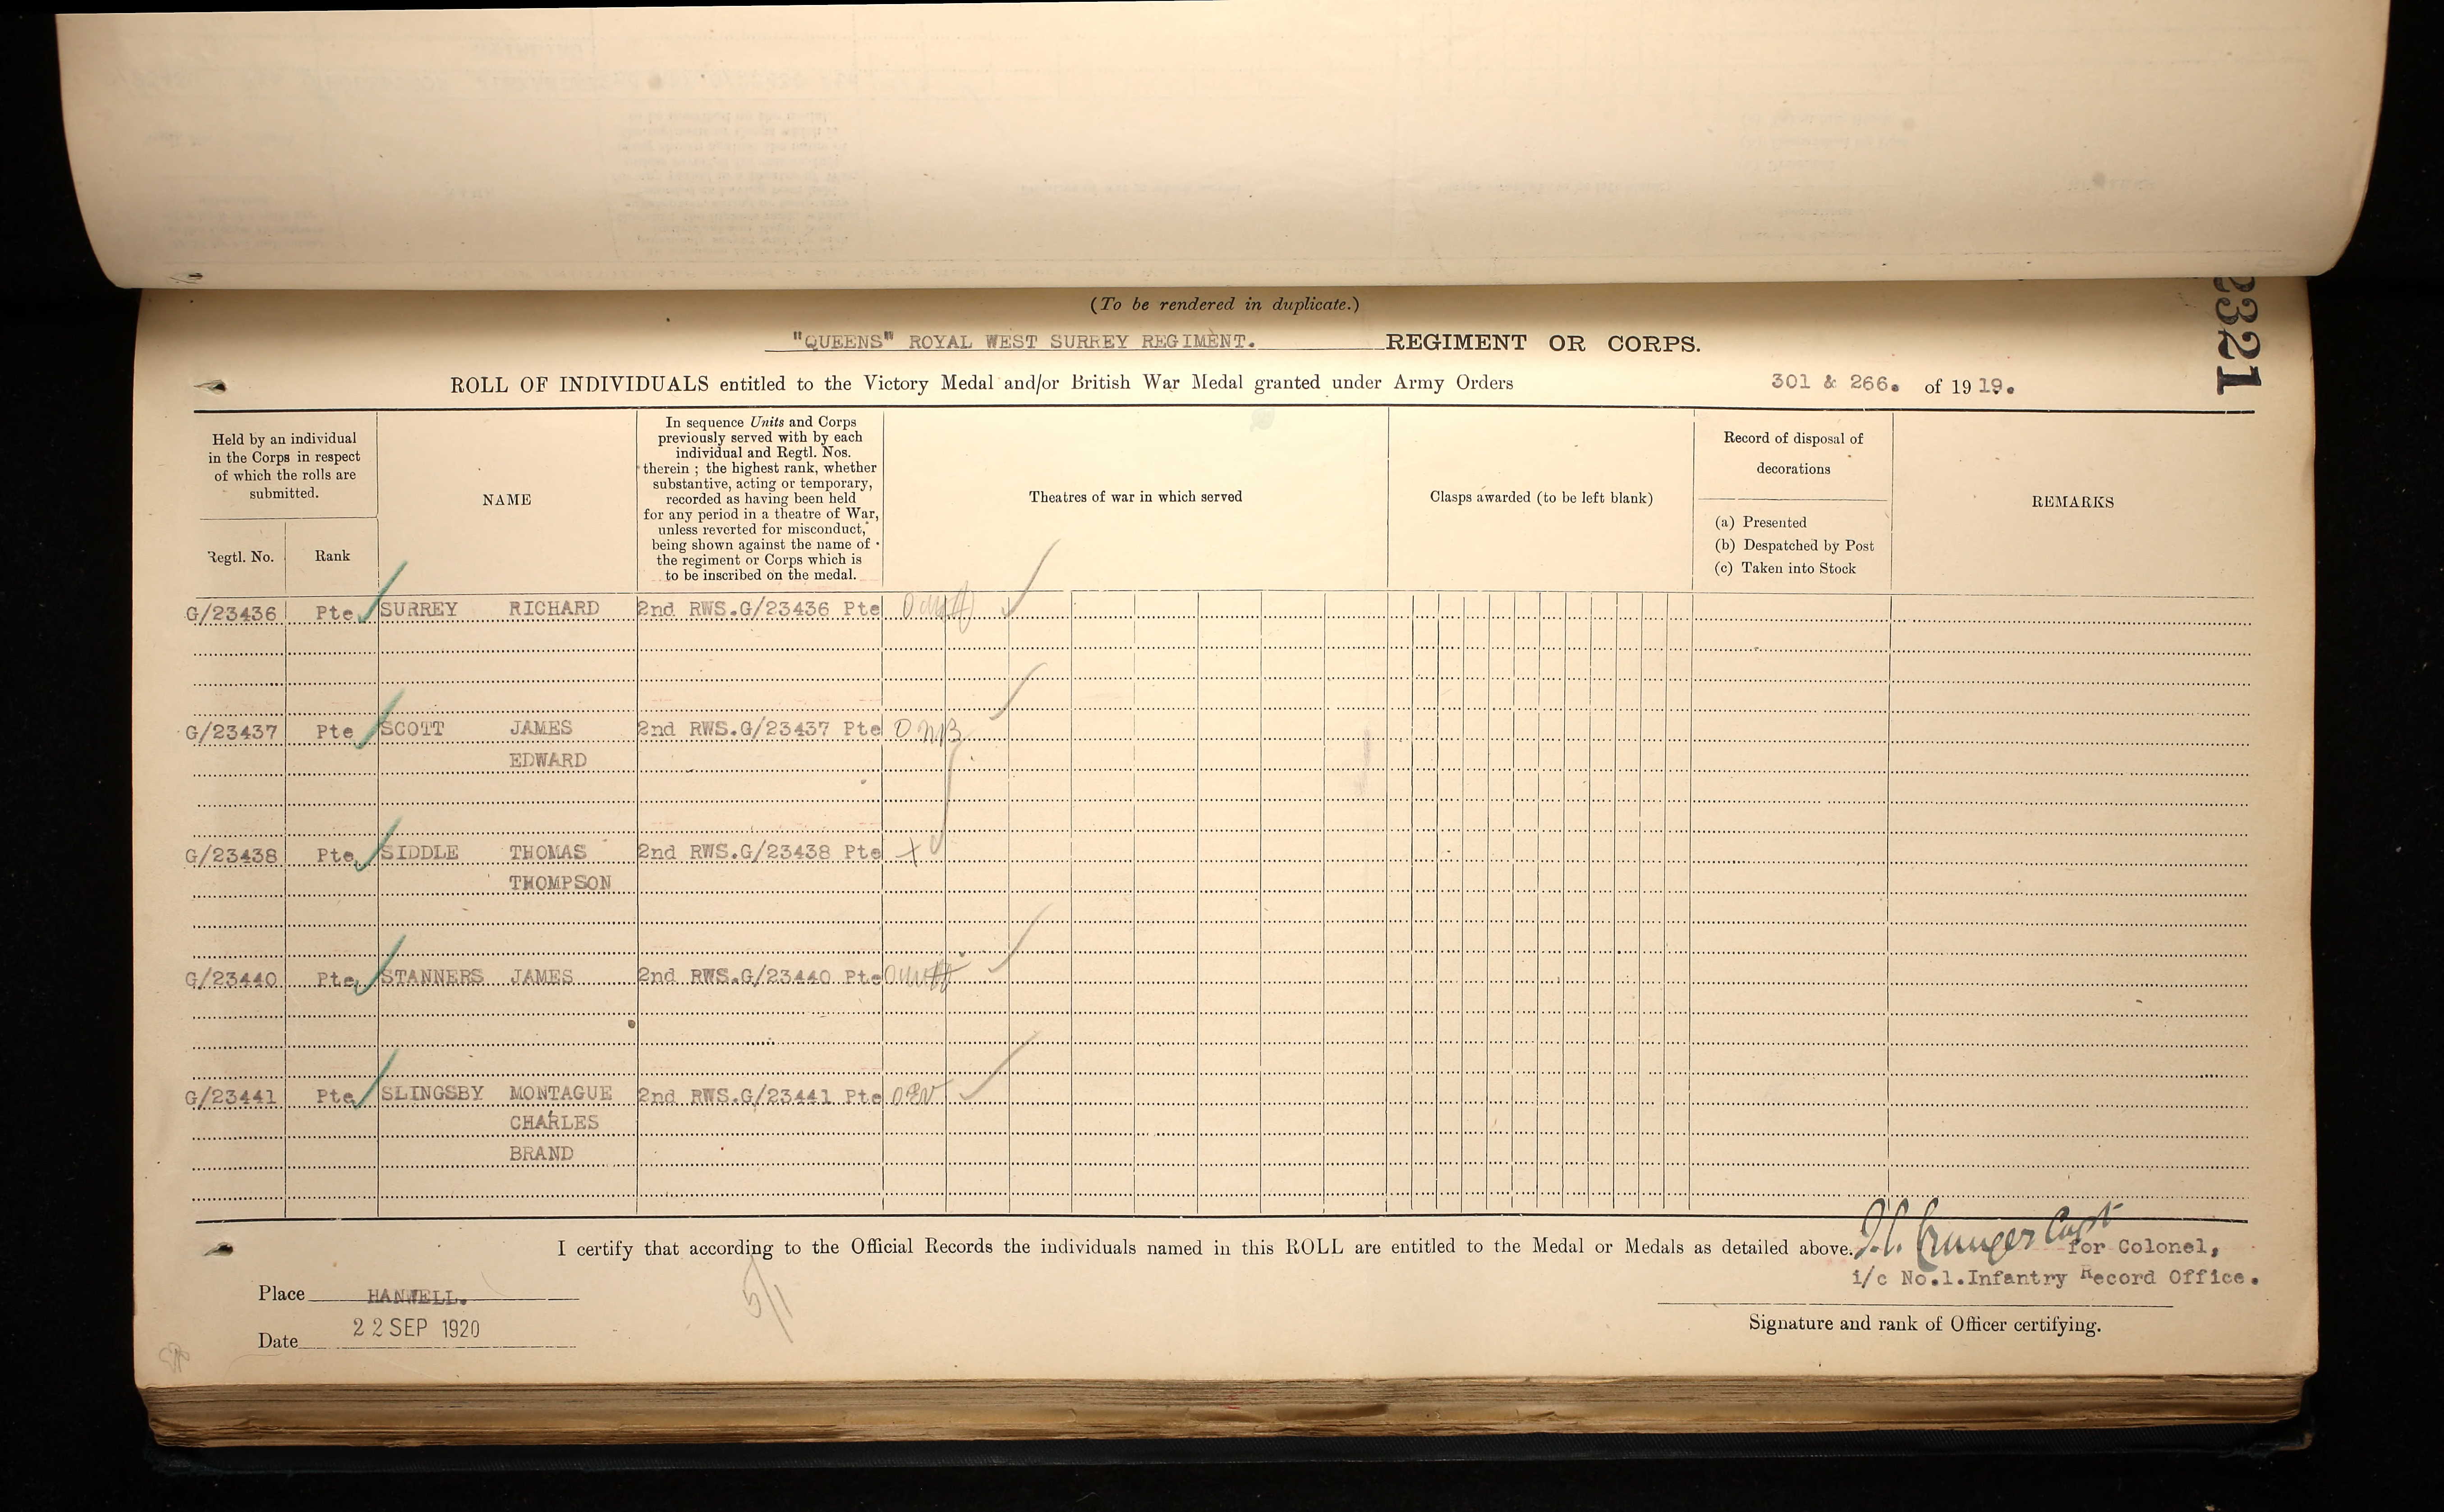 (To be rendered in duplicate.)
"QUEENS" ROYAL WEST SURREY REGIMENT. REGIMENT OR CORPS.
2321
ROLL OF INDIVIDUALS entitled to the Victory Medal and/or British War Medal granted under Army Orders 301 & 266. of 1919.
Held by an individual
in the Corps in respect
of which the rolls are
submitted.
Regtl. No. Rank
NAME
In sequence Units and Corps
previously served with by each
individual and Regtl. Nos.
therein ; the highest rank, whether
substantive, acting or temporary,
recorded as having been held
for any period in a theatre of War,
unless reverted for misconduct,
being shown against the name of
the regiment or Corps which is
to be inscribed on the medal.
Theatres of war in which served
Clasps awarded (to be left blank)
Record of disposal of
decorations
(a) Presented
(b) Despatched by Post
(c) Taken into Stock
REMARKS
G/23436 Pte SURREY RICHARD 2nd RWS.G/23436 Pte
G/23437 Pte SCOTT JAMES 2nd RWS.G/23437 Pte
EDWARD
G/23438 Pte SIDDLE THOMAS 2nd RWS.G/23438 Pte
THOMPSON
G/23440 Pte STANNERS JAMES 2nd RWS.G/23440 Pte
G/23441 Pte SLINGSBY MONTAGUE 2nd RWS.G/23441 Pte
CHARLES
BRAND
I certify that according to the Official Records the individuals named in this ROLL are entitled to the Medal or Medals as detailed above. Capt for Colonel,
i/c No.1.Infantry Record Office.
Place HANWELL.
Date 22 SEP 1920
Signature and rank of Officer certifying.